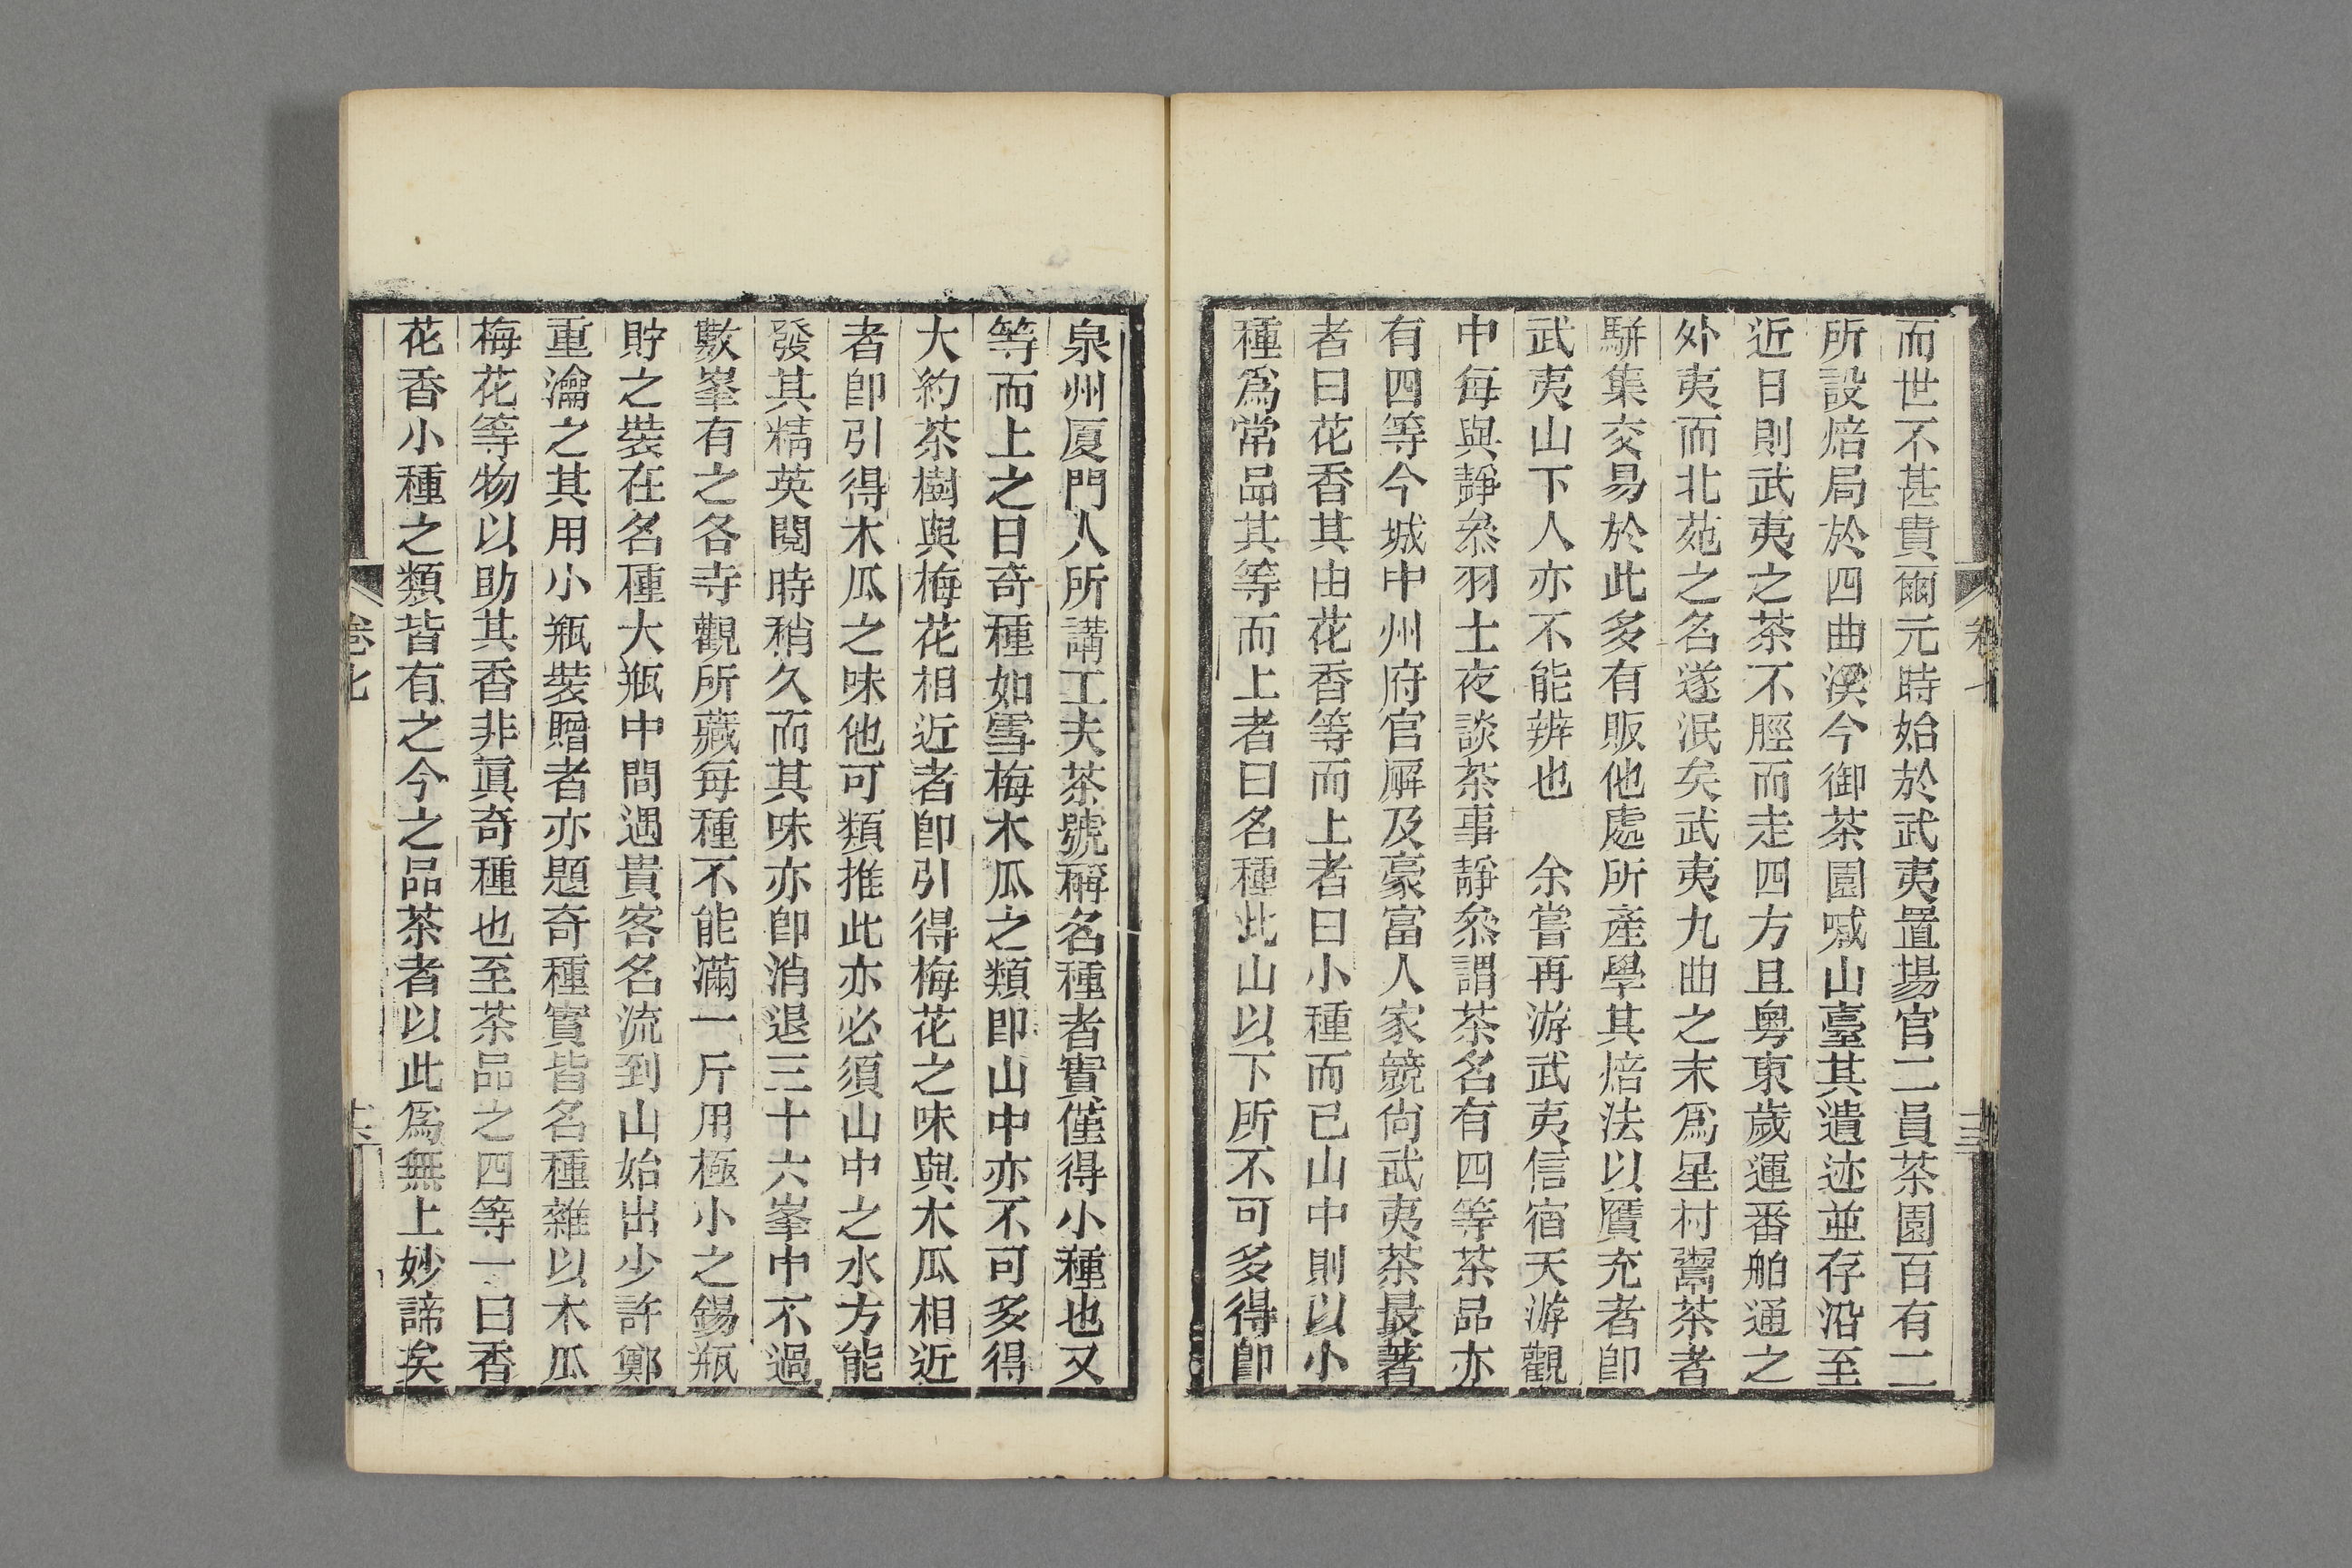 而世不甚貴爾元時始於武夷置場官二員茶園百有二
所設焙局於四曲溪今御茶園喊山臺其遺迹並存沿至
近日則武夷之茶不脛而走四方且粤東歲運番舶通之
外夷而北苑之名遂泯矣武夷九曲之末爲星村鬻茶者
駢集交易於此多有販他處所產學其焙法以贋充者卽
武夷山下人亦不能辨也　余嘗再游武夷信宿天游觀
中每與靜叅羽士夜談茶事靜叅謂茶名有四等茶品亦
有四等今城中州府官廨及豪富人家競尙武夷茶最著
者曰花香其由花香等而上者曰小種而已山中則以小
種爲常品其等而上者曰名種此山以下所不可多得卽
泉州厦門人所講工夫茶號稱名種者實僅得小種也又
等而上之曰奇種如雪梅木瓜之類卽山中亦不可多得
大約茶樹與梅花相近者卽引得梅花之味與木瓜相近
者卽引得木瓜之味他可類推此亦必須山中之水方能
發其精英閱時稍久而其味亦卽消退三十六峯中不過
數峯有之各寺觀所藏每種不能滿一斤用極小之錫瓶
貯之裝在名種大瓶中間遇貴客名流到山始出少許鄭
重瀹之其用小瓶裝贈者亦題奇種實皆名種雜以木瓜
梅花等物以助其香非眞奇種也至茶品之四等一曰香
花香小種之類皆有之今之品茶者以此爲無上妙諦矣